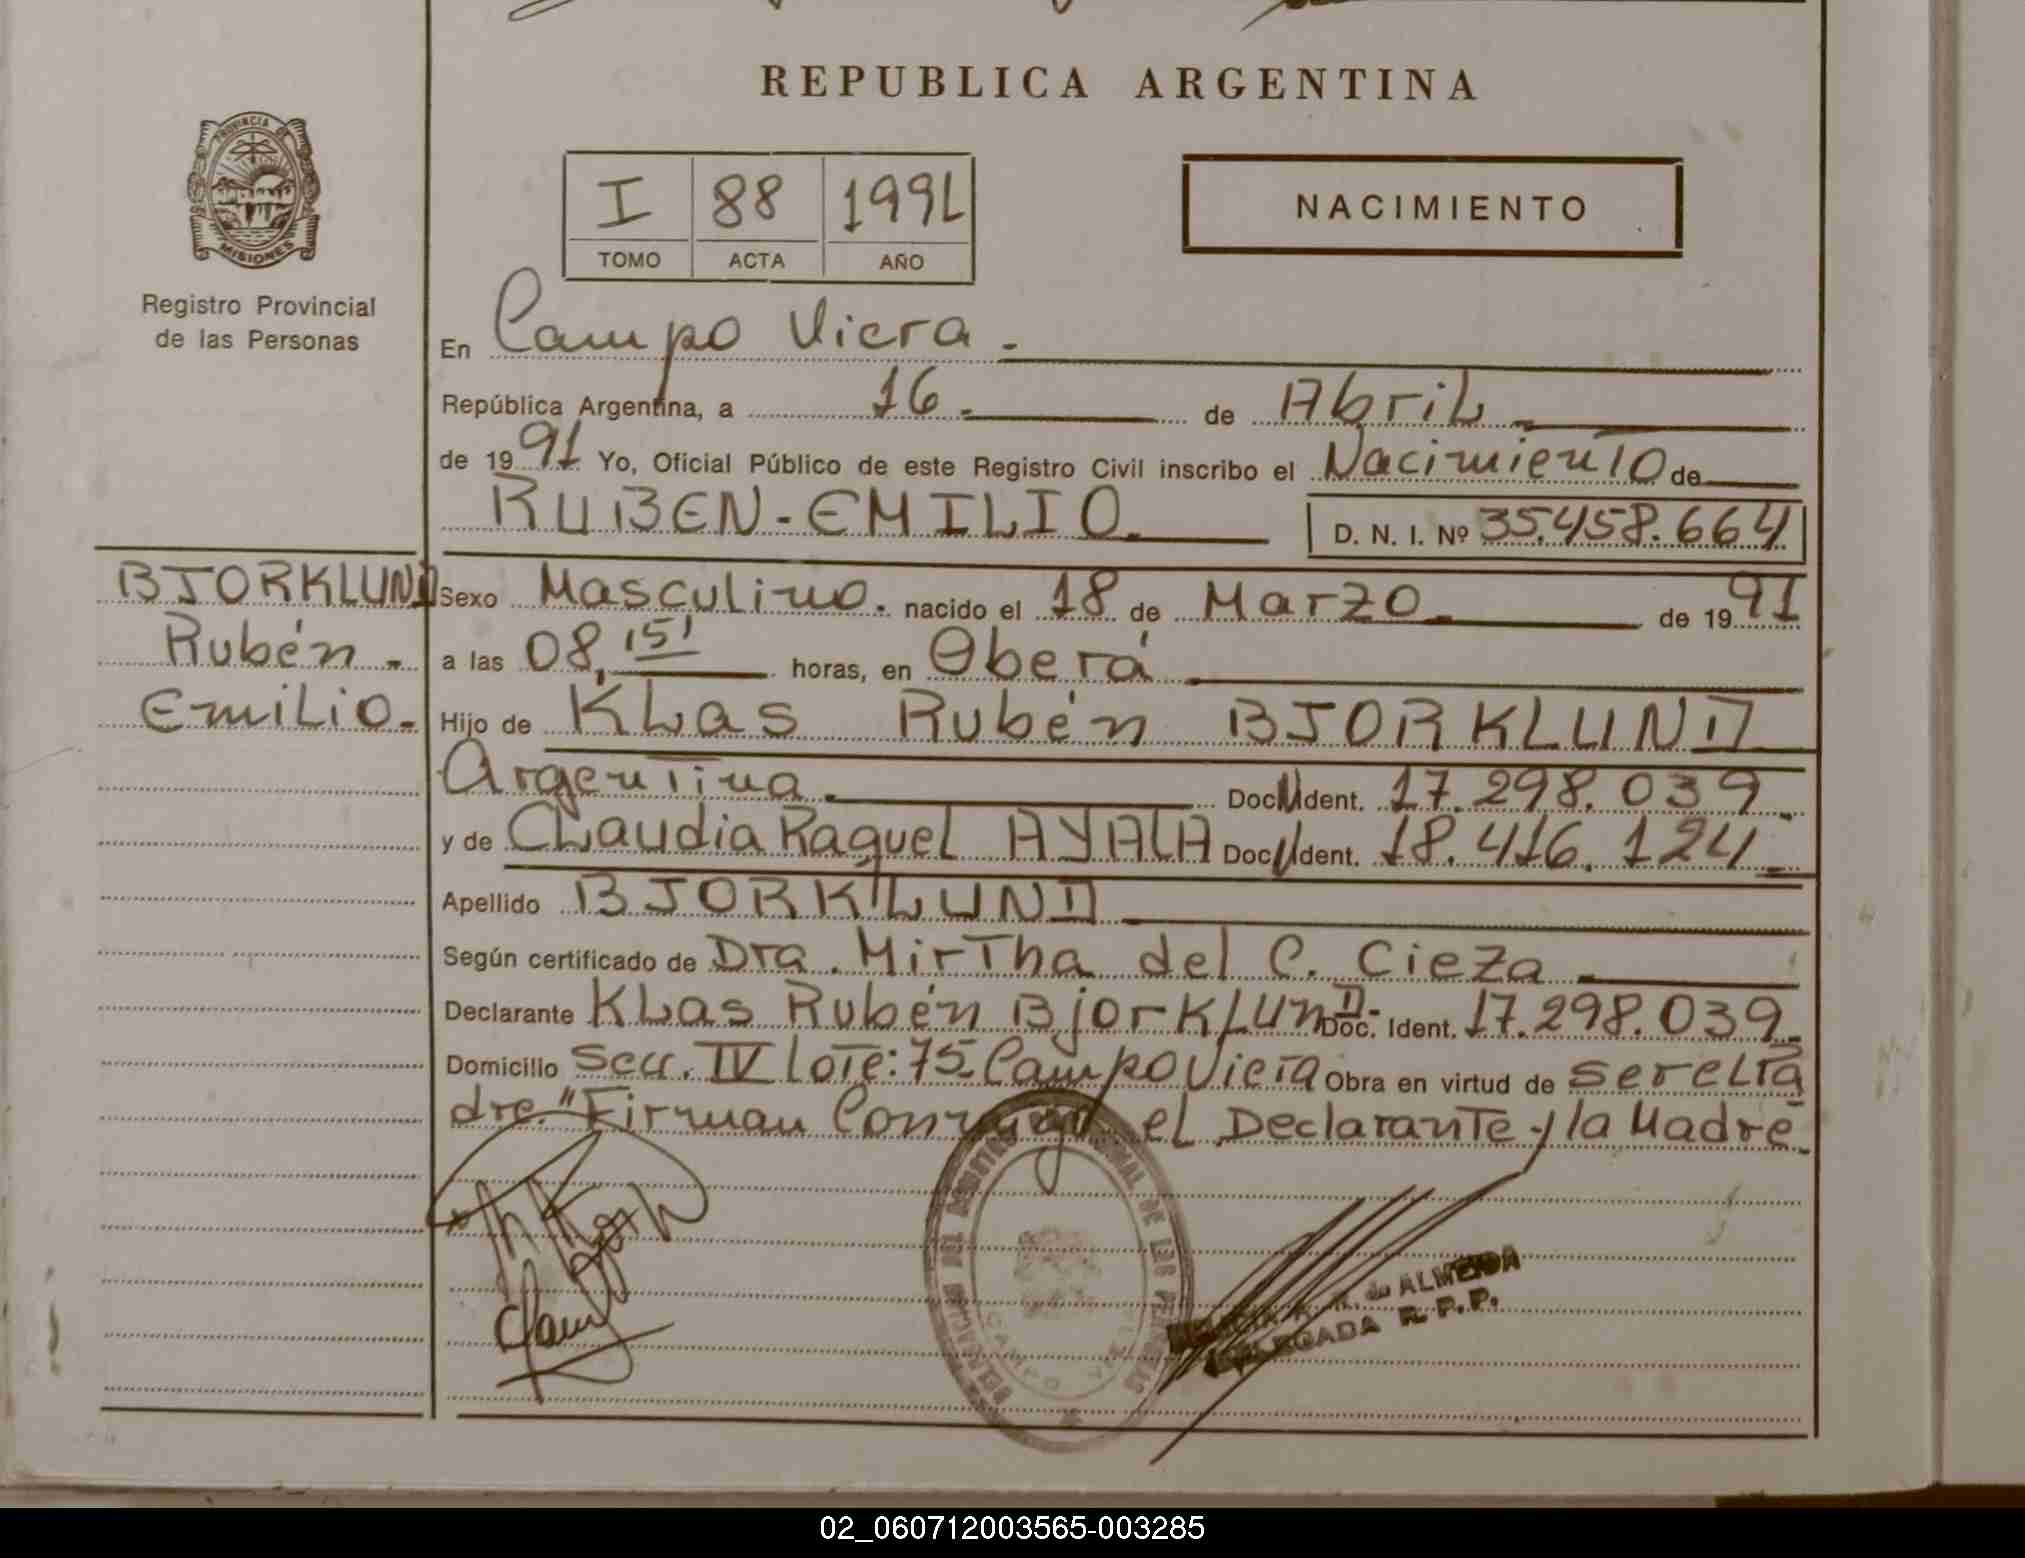 REPUBLICA ARGENTINA
PROVINCIA DE
MISIONES
Registro Provincial
de las Personas
I 88 1991
TOMO ACTA AÑO
NACIMIENTO
En Campo Viera.
República Argentina, a 16. de Abril
de 1991 Yo, Oficial Público de este Registro Civil inscribo el Nacimiento de
RUBEN-EMILIO. D. N. I. Nº 35.458.664
BJORKLUND
Rubén.
Emilio.
Sexo Masculino. nacido el 18 de Marzo de 1991
a las 08,15' horas, en Oberá
Hijo de Klas Rubén BJORKLUND
Argentina. Doc. Ident. 17.298.039
y de Claudia Raquel AYALA Doc. Ident. 18.416.124
Apellido BJORKLUND
Según certificado de Dra. Mirtha del C. Cieza
Declarante Klas Rubén BjorKLUND Doc. Ident. 17.298.039.
Domicilio Secc. IV lote: 75-Campo Viera Obra en virtud de ser el Pa
dre." Firman Conmigo el Declarante y la Madre
CAMPO
de ALMEIDA
DELEGADA R. P. P.
02_060712003565-003285